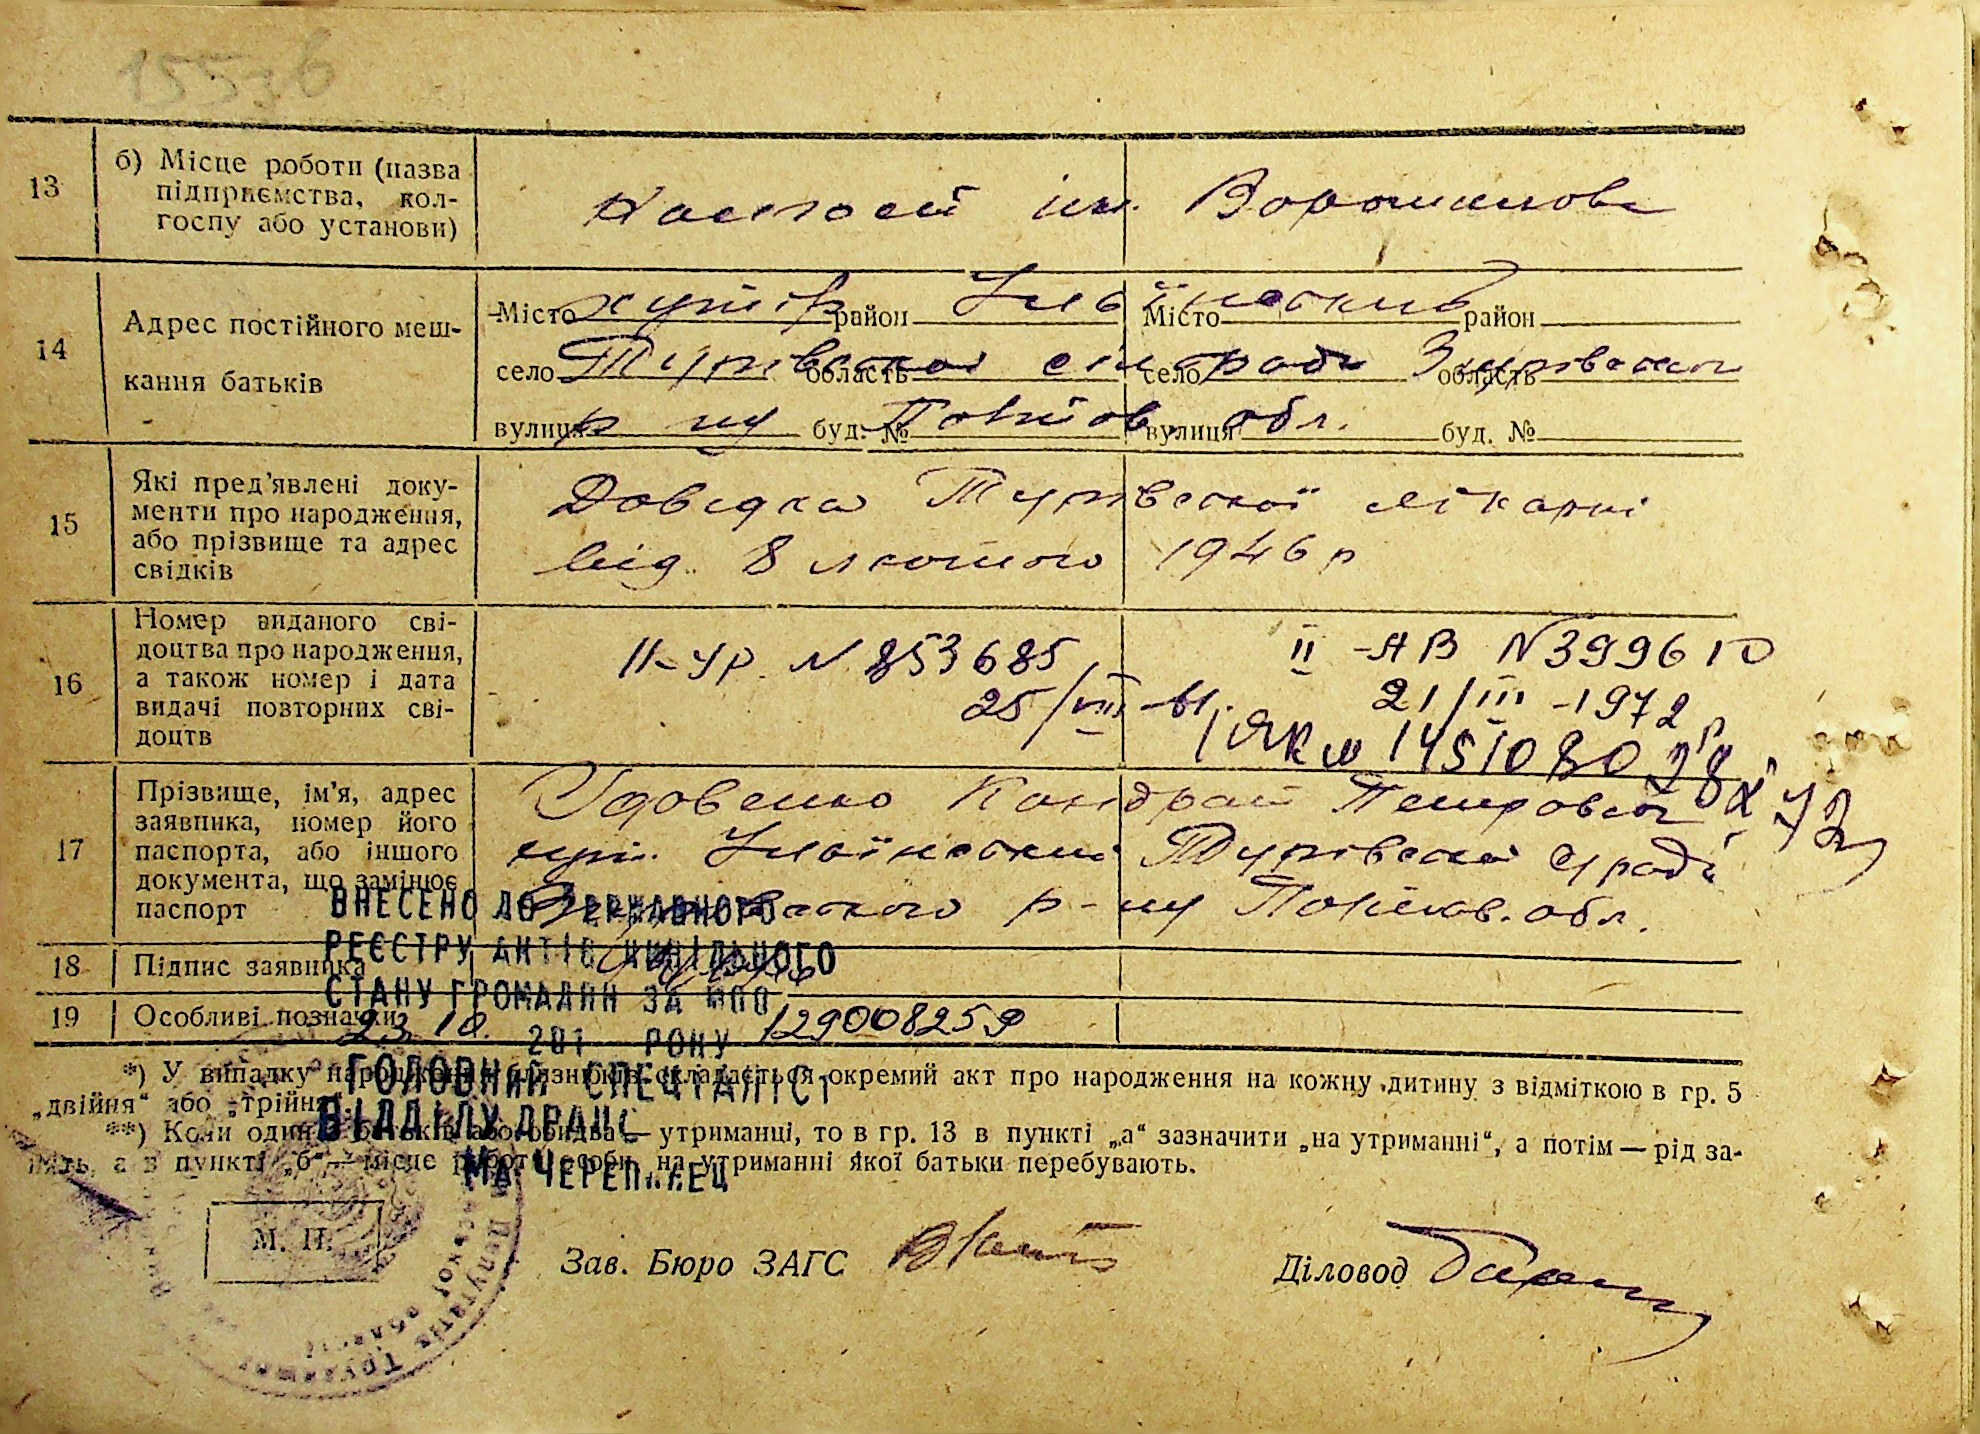 13
б) Місце роботи (назва
підприємства, кол-
госпу або установи)
Колгосп ім. Ворошилова
14
Адрес постійного меш-
кання батьків
Місто хутір район Місто район
село Турівської область сільради село область
вулиця р ну буд. № Полтов. вулиця обл. буд. №
15
Які пред'явлені доку-
менти про народження,
або прізвище та адрес
свідків
Довідка Турівської лікарні
від 8 лютого 1946 р
16
Номер виданого сві-
доцтва про народження,
а також номер і дата
видачі повторних сві-
доцтв
II-УР. N 853685
25/VIII-61.
II-АВ N 399610
21/III-1972 р
17
Прізвище, ім'я, адрес
заявника, номер його
паспорта, або іншого
документа, що замінює
паспорт
Удовенко Кондрат Петрович
хут. Турівської с/ради
р-ну Полтав. обл.
18
Підпис заявника
19
Особливі позначки
ВНЕСЕНО ДО ДЕРЖАВНОГО
РЕЄСТРУ АКТІВ ЦИВІЛЬНОГО
СТАНУ ГРОМАДЯН ЗА №
23. 10. 129008259
201 РОКУ
ГОЛОВНИЙ СПЕЦІАЛІСТ
ВІДДІЛУ ДРАЦС
*) У випадку народження близнюків складається окремий акт про народження на кожну дитину з відміткою в гр. 5
„двійня“ або „трійня“.
**) Коли один з батьків або обидва — утриманці, то в гр. 13 в пункті „а“ зазначити „на утриманні“, а потім — рід за-
нять, а в пункті „б“ — місце роботи особи, на утриманні якої батьки перебувають.
М. П.
Зав. Бюро ЗАГС
Діловод